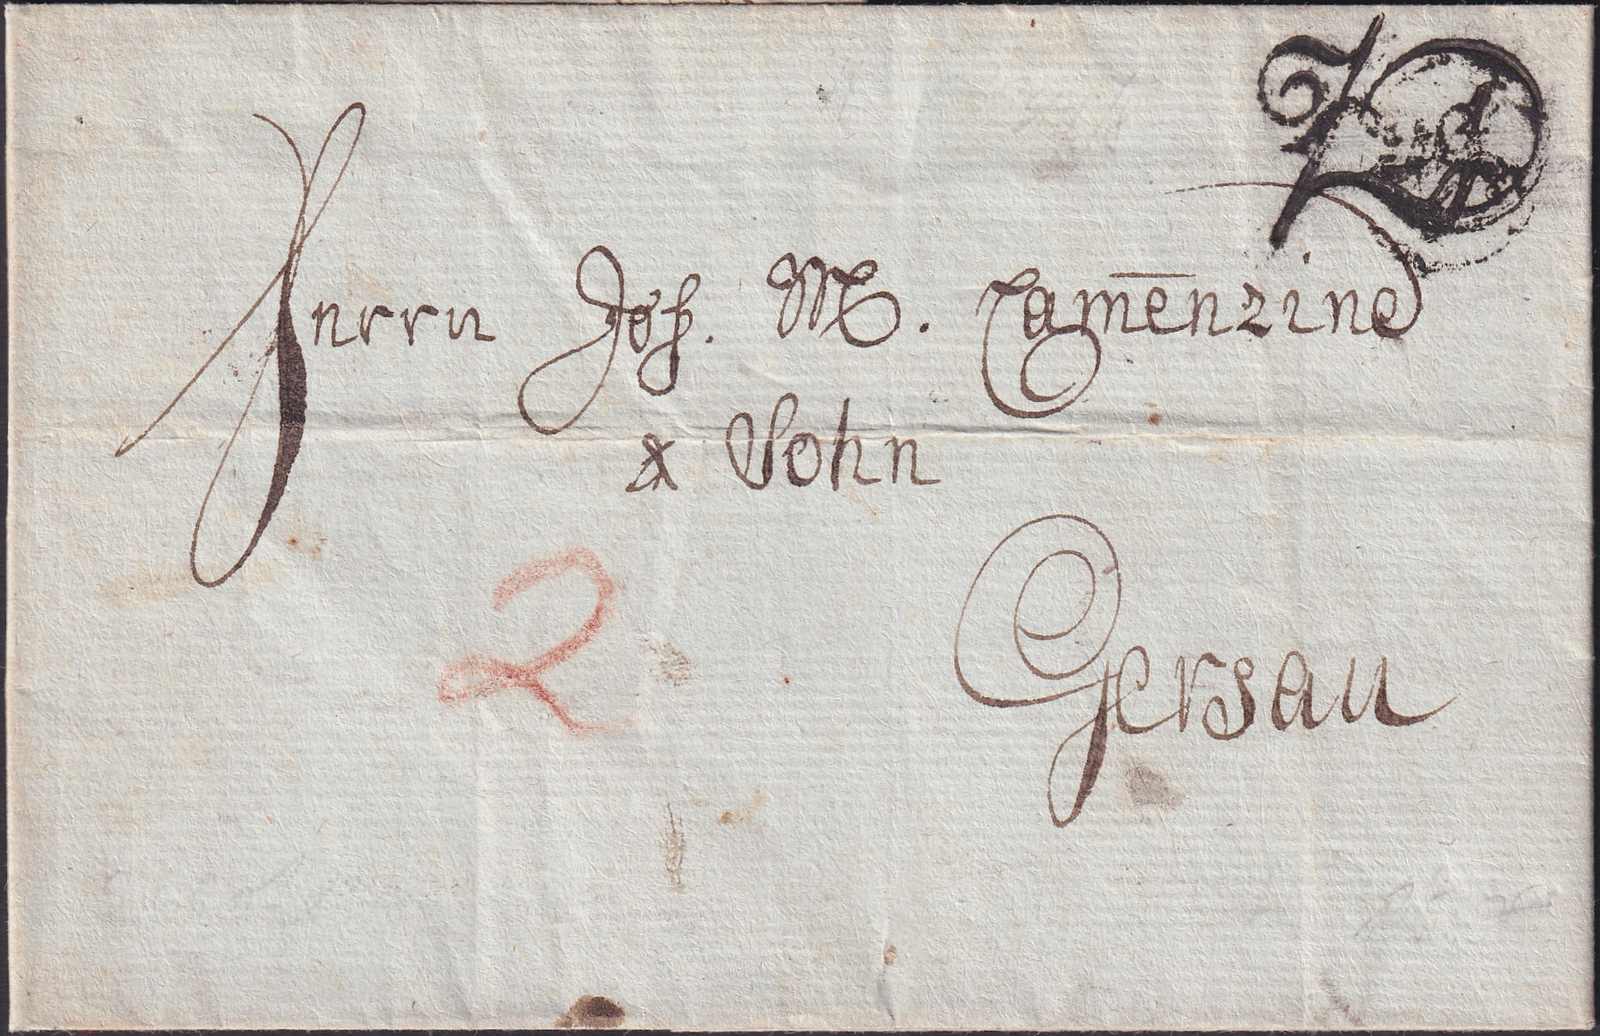 Herrn Joh. M. Camēnzine
& Sohn
2
Gersau